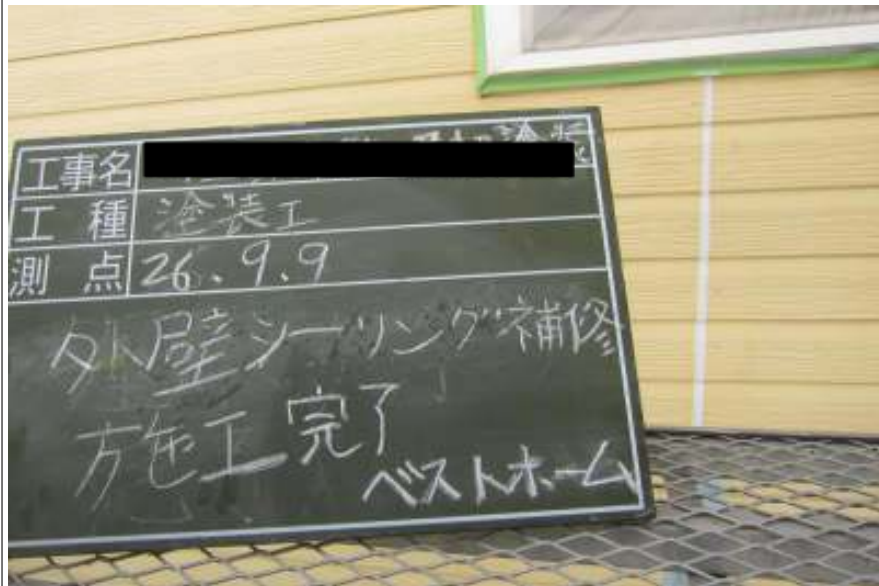 工事名 塗装
工種 塗装工
測点 26.9.9
外壁シーリング補修
施工完了
ベストホーム